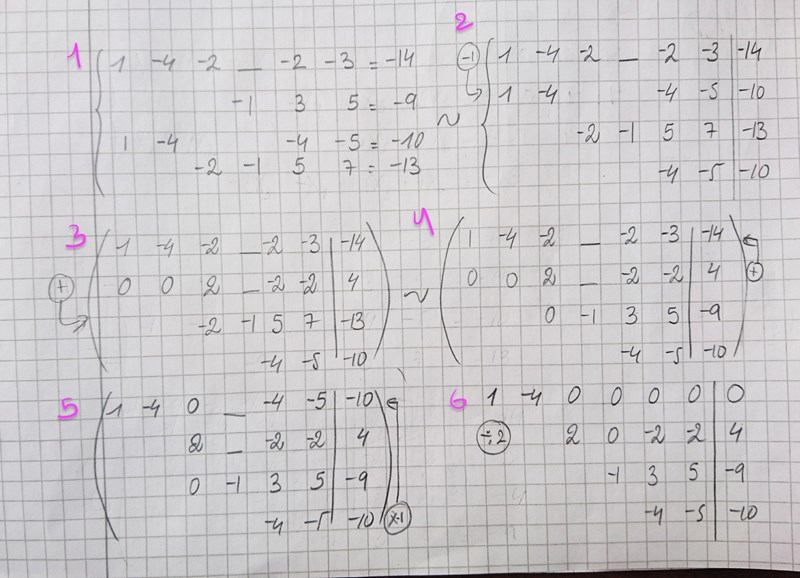 1 1 -4 -2 _ -2 -3 = -14
-1 3 5 = -9
1 -4 -4 -5 = -10
-2 -1 5 7 = -13
~
2 (-1) 1 -4 -2 _ -2 -3 | -14
1 -4 -4 -5 | -10
-2 -1 5 7 | -13
-4 -5 | -10
3 1 -4 -2 _ -2 -3 | -14
(+) 0 0 2 _ -2 -2 | 4
-2 -1 5 7 | -13
-4 -5 | -10
~
4 1 -4 -2 _ -2 -3 | -14
0 0 2 _ -2 -2 | 4 (+)
0 -1 3 5 | -9
-4 -5 | -10
5 1 -4 0 _ -4 -5 | -10
2 _ -2 -2 | 4
0 -1 3 5 | -9
-4 -5 | -10 (x-1)
6 1 -4 0 0 0 0 | 0
(÷2) 2 0 -2 -2 | 4
-1 3 5 | -9
-4 -5 | -10